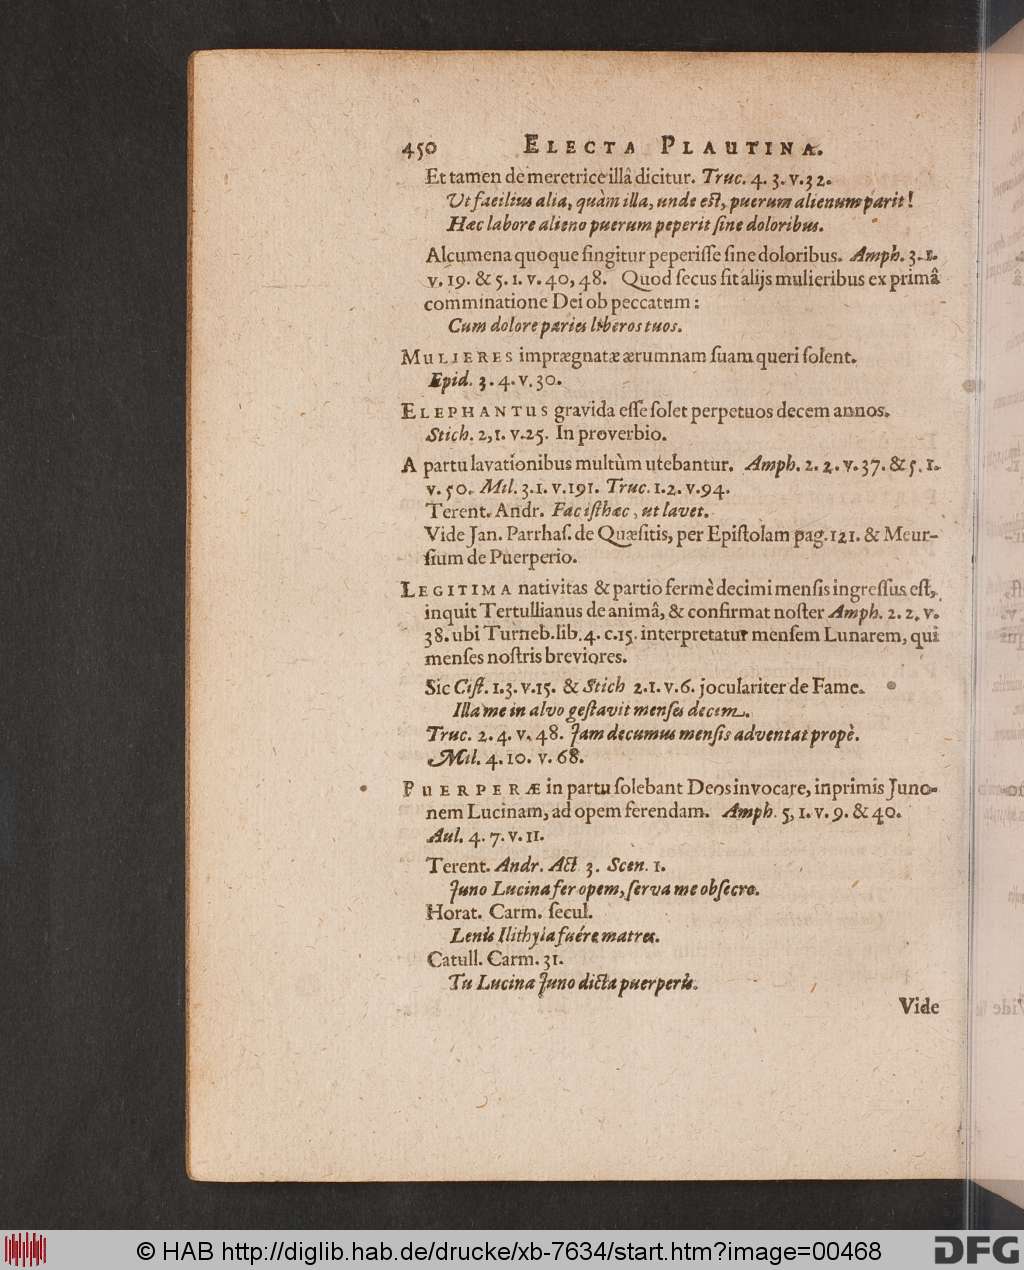 450 ELECTA PLAUTINA.
Et tamen de meretrice illâ dicitur. Truc. 4. 3. v. 32.
Ut facilius alia, quàm illa, unde est, puerum alienum parit!
Hæc labore alieno puerum peperit sine doloribus.
Alcumena quoque fingitur peperisse sine doloribus. Amph. 3. 1.
v. 19. & 5. 1. v. 40, 48. Quod secus fit alijs mulieribus ex primâ
comminatione Dei ob peccatum:
Cum dolore paries liberos tuos.
MULIERES imprægnatæ ærumnam suam queri solent.
Epid. 3. 4. v. 30.
ELEPHANTUS gravida esse solet perpetuos decem annos.
Stich. 2, 1. v. 25. In proverbio.
A partu lavationibus multùm utebantur. Amph. 2. 2. v. 37. & 5. 1.
v. 50. Mil. 3. 1. v. 191. Truc. 1. 2. v. 94.
Terent. Andr. Fac isthæc, ut lavet.
Vide Jan. Parrhas. de Quæsitis, per Epistolam pag. 121. & Meur-
sium de Puerperio.
LEGITIMA nativitas & partio fermè decimi mensis ingressus est,
inquit Tertullianus de animâ, & confirmat noster Amph. 2. 2. v.
38. ubi Turneb. lib. 4. c. 15. interpretatur mensem Lunarem, qui
menses nostris breviores.
Sic Cist. 1. 3. v. 15. & Stich 2. 1. v. 6. joculariter de Fame.
Illa me in alvo gestavit menses decem.
Truc. 2. 4. v. 48. Jam decumus mensis adventat propè.
Mil. 4. 10. v. 68.
PUERPERÆ in partu solebant Deos invocare, inprimis Juno-
nem Lucinam, ad opem ferendam. Amph. 5, 1. v. 9. & 40.
Aul. 4. 7. v. 11.
Terent. Andr. Act. 3. Scen. 1.
Juno Lucina fer opem, serva me obsecro.
Horat. Carm. secul.
Lenis Ilithyia fuére matres.
Catull. Carm. 31.
Tu Lucina Juno dicta puerperis.
Vide
© HAB http://diglib.hab.de/drucke/xb-7634/start.htm?image=00468
DFG